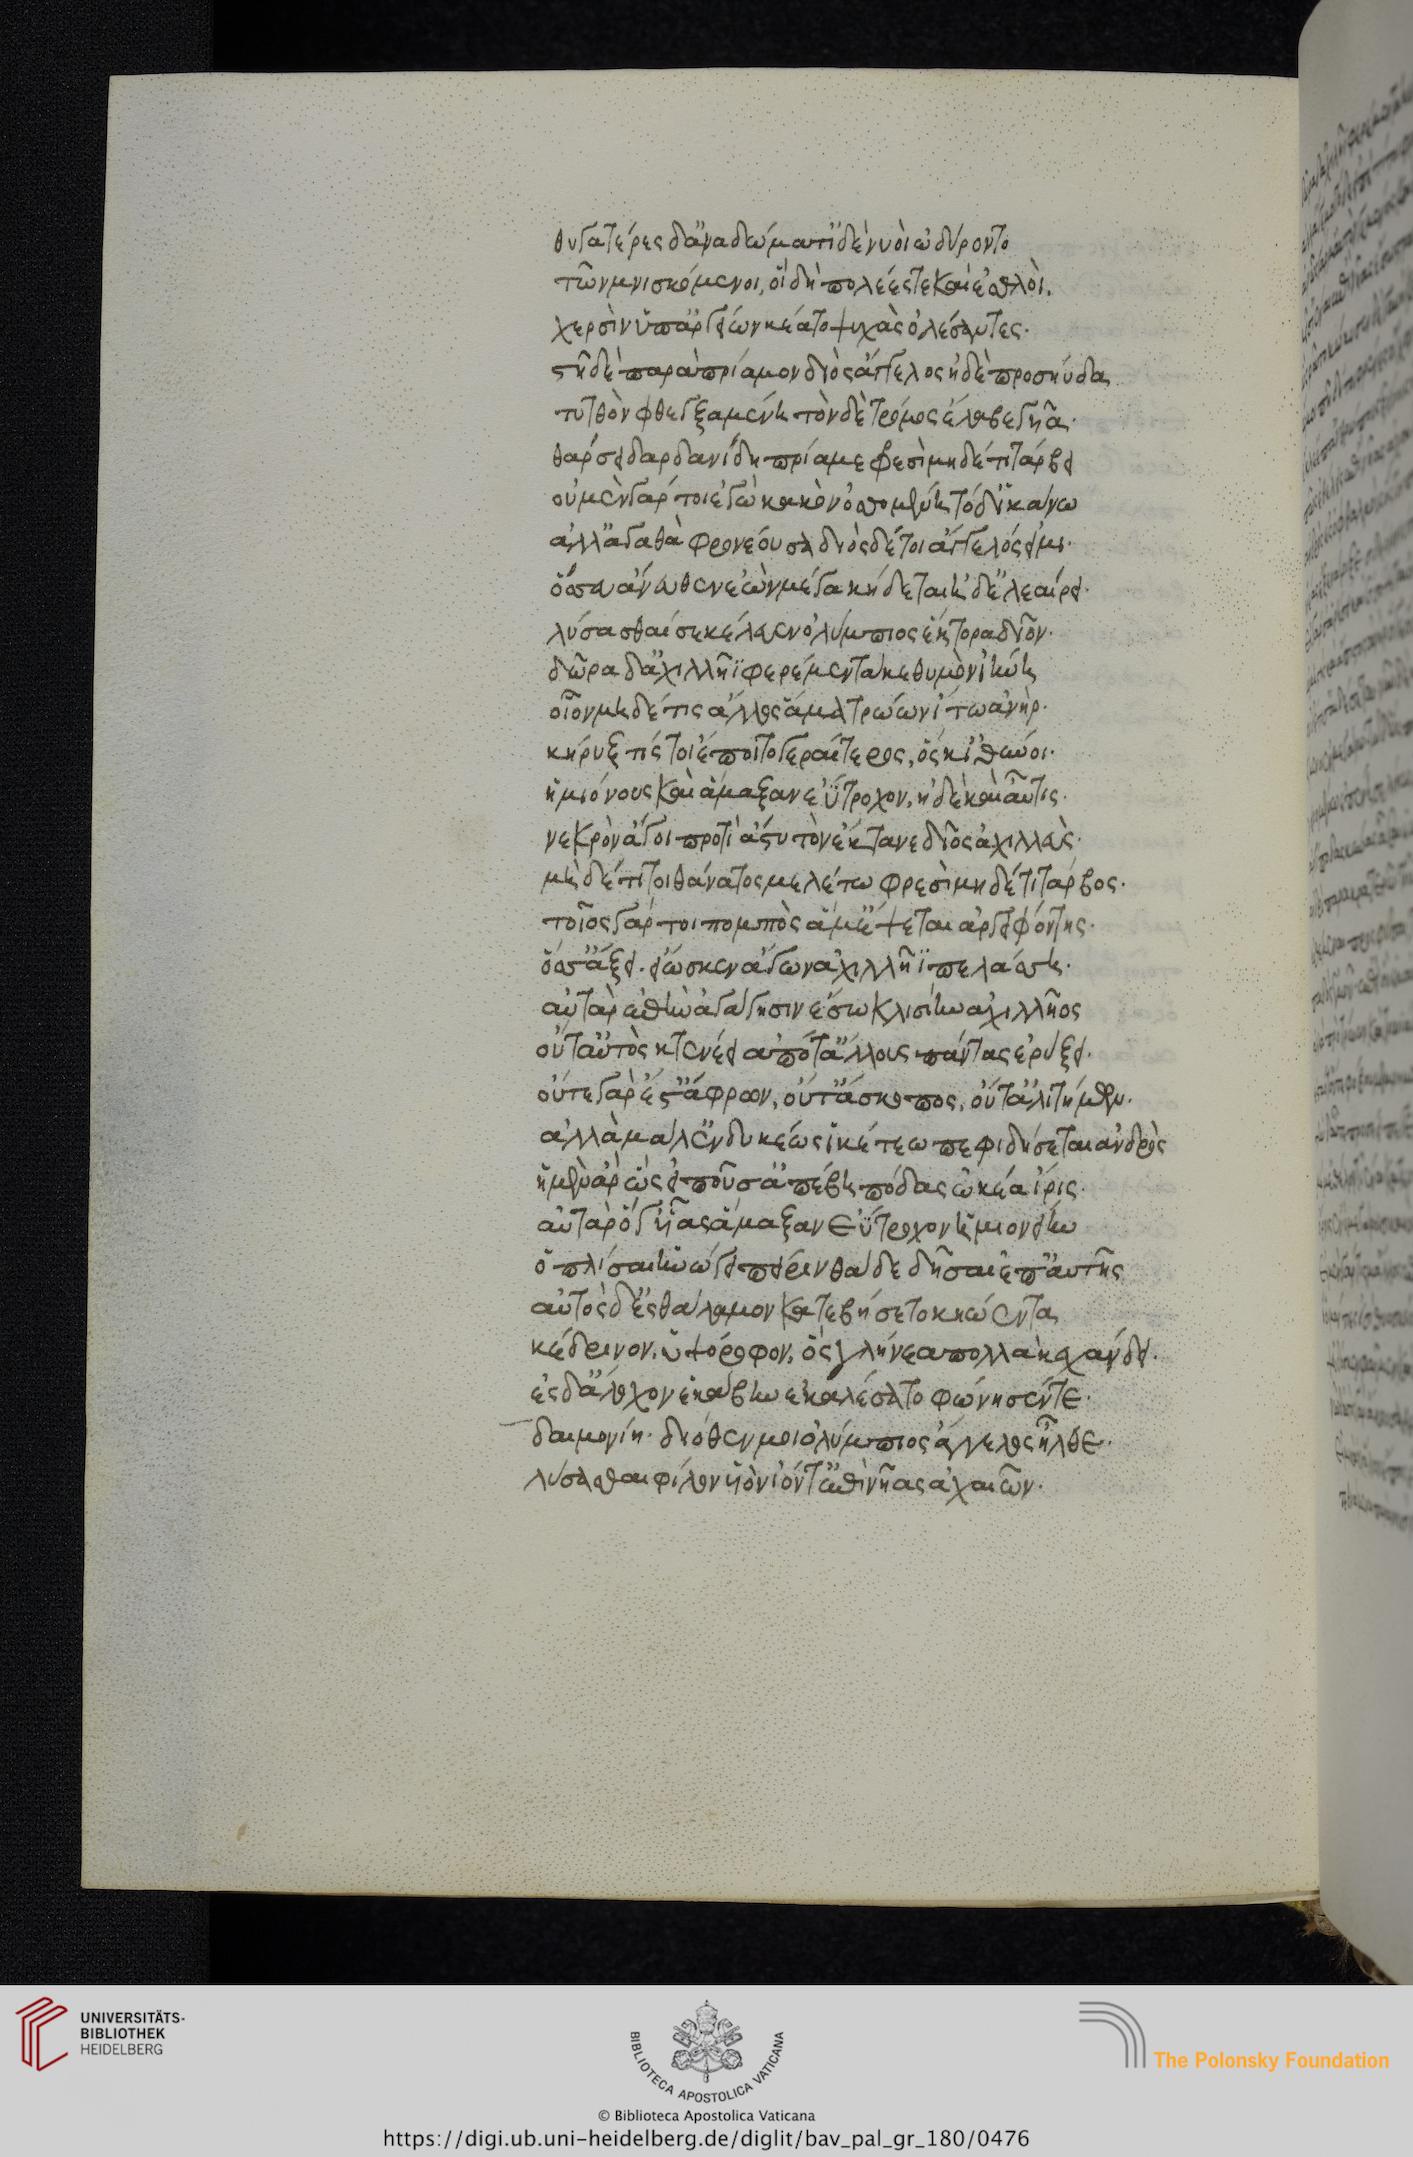 θυγατέρες δ' ἄνα δώματ' ἰδὲ νυοὶ ὠδύροντο
τῶν μνησκόμενοι, οἳ δὴ πολέες τε καὶ ἐσθλοὶ.
χερσὶν ὑπ' ἀργείων κέατο ψυχὰς ὀλέσαντες·
στῆ δὲ παρὰ πρίαμον διὸς ἄγγελος ἠδὲ προσηύδα
τυτθὸν φθεγξαμένη τὸν δὲ τρόμος ἔλαβε γυῖα·
θάρσει δαρδανίδη πρίαμε φρεσὶ μηδέ τι τάρβει
οὐ μὲν γάρ τοι ἐγὼ κακὸν ὀσσομένη τόδ' ἱκάνω
ἀλλ' ἀγαθὰ φρονέουσα διὸς δέ τοι ἄγγελός εἰμι·
ὅς σευ ἄνευθεν ἐὼν μέγα κήδεται ἠδ' ἐλεαίρει·
λύσασθαί σε κέλευεν ὀλύμπιος ἕκτορα δῖον·
δῶρα δ' ἀχιλλῆϊ φερέμεν τά κε θυμὸν ἰήνη
οἶον μηδέ τις ἄλλος ἅμα τρώων ἴτω ἀνὴρ·
κήρυξ τίς τοι ἕποιτο γεραίτερος, ὅς κ' ἰθύνοι·
ἡμιόνους καὶ ἅμαξαν ἐΰτροχον, ἠδὲ καὶ αὖτις·
νεκρὸν ἄγοι προτὶ ἄστυ τὸν ἔκτανε δῖος ἀχιλλεὺς·
μὴ δέ τί τοι θάνατος μελέτω φρεσὶ μηδέ τι τάρβος·
τοῖος γάρ τοι πομπὸς ἅμ' ἕψεται ἀργειφόντης·
ὅς σ' ἄξει. εἵως κεν ἄγων ἀχιλλῆϊ πελάσση·
αὐτὰρ ἐπὴν ἀγάγησιν ἔσω κλισίην ἀχιλλῆος
οὔτ' αὐτὸς κτενέει ἀπό τ' ἄλλους πάντας ἐρύξει·
οὔτε γὰρ ἔστ' ἄφρων, οὔτ' ἄσκοπος, οὔτ' ἀλιτήμων·
ἀλλὰ μάλ' ἐνδυκέως ἱκέτεω πεφιδήσεται ἀνδρὸς
ἡ μὲν ἄρ' ὣς εἰποῦσ' ἀπέβη πόδας ὠκέα ἶρις·
αὐτὰρ ὅγ' υἷας ἅμαξαν ἐΰτροχον ἡμιονείην
ὁπλίσαι ἠνώγει πείρινθα δὲ δῆσαι ἐπ' αὐτῆς
αὐτὸς δ' ἐς θάλαμον κατεβήσετο κηώεντα
κέδρινον, ὑψόροφον, ὃς γλήνεα πολλὰ κεχάνδει·
ἐς δ' ἄλοχον ἑκάβην ἐκαλέσατο φώνησέν τε·
δαιμονίη· διόθεν μοι ὀλύμπιος ἄγγελος ἦλθε·
λύσασθαι φίλον υἱὸν ἰόντ' ἐπὶ νῆας ἀχαιῶν·
UNIVERSITÄTS-
BIBLIOTHEK
HEIDELBERG
BIBLIOTECA APOSTOLICA VATICANA
The Polonsky Foundation
© Biblioteca Apostolica Vaticana
https://digi.ub.uni-heidelberg.de/diglit/bav_pal_gr_180/0476